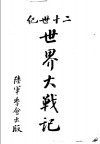 二十世紀
世界大戰記
陸軍學會出版